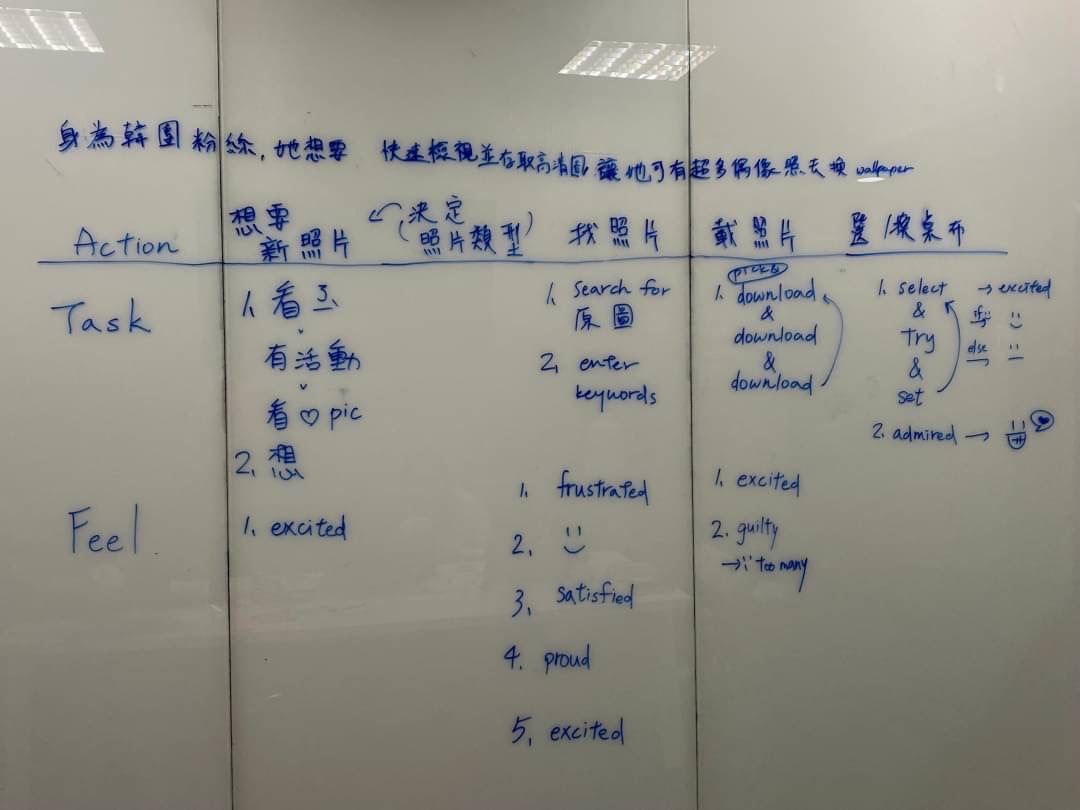 身為韓團粉絲,她想要 快速檢視並存取高清圖 讓他可有超多偶像照去換 wallpaper
Action
想要
新照片
(決定
照片類型)
找照片
載照片
選/換桌布
Task
1. 看
有活動
看♡pic
2. 想
1. search for
原圖
2. enter
keywords
1. download
&
download
&
download
1. select → excited
&
Try
&
set
if
else
2. admired →
Feel
1. excited
1. frustrated
2.
3. satisfied
4. proud
5. excited
1. excited
2. guilty
→ ∵ Too many